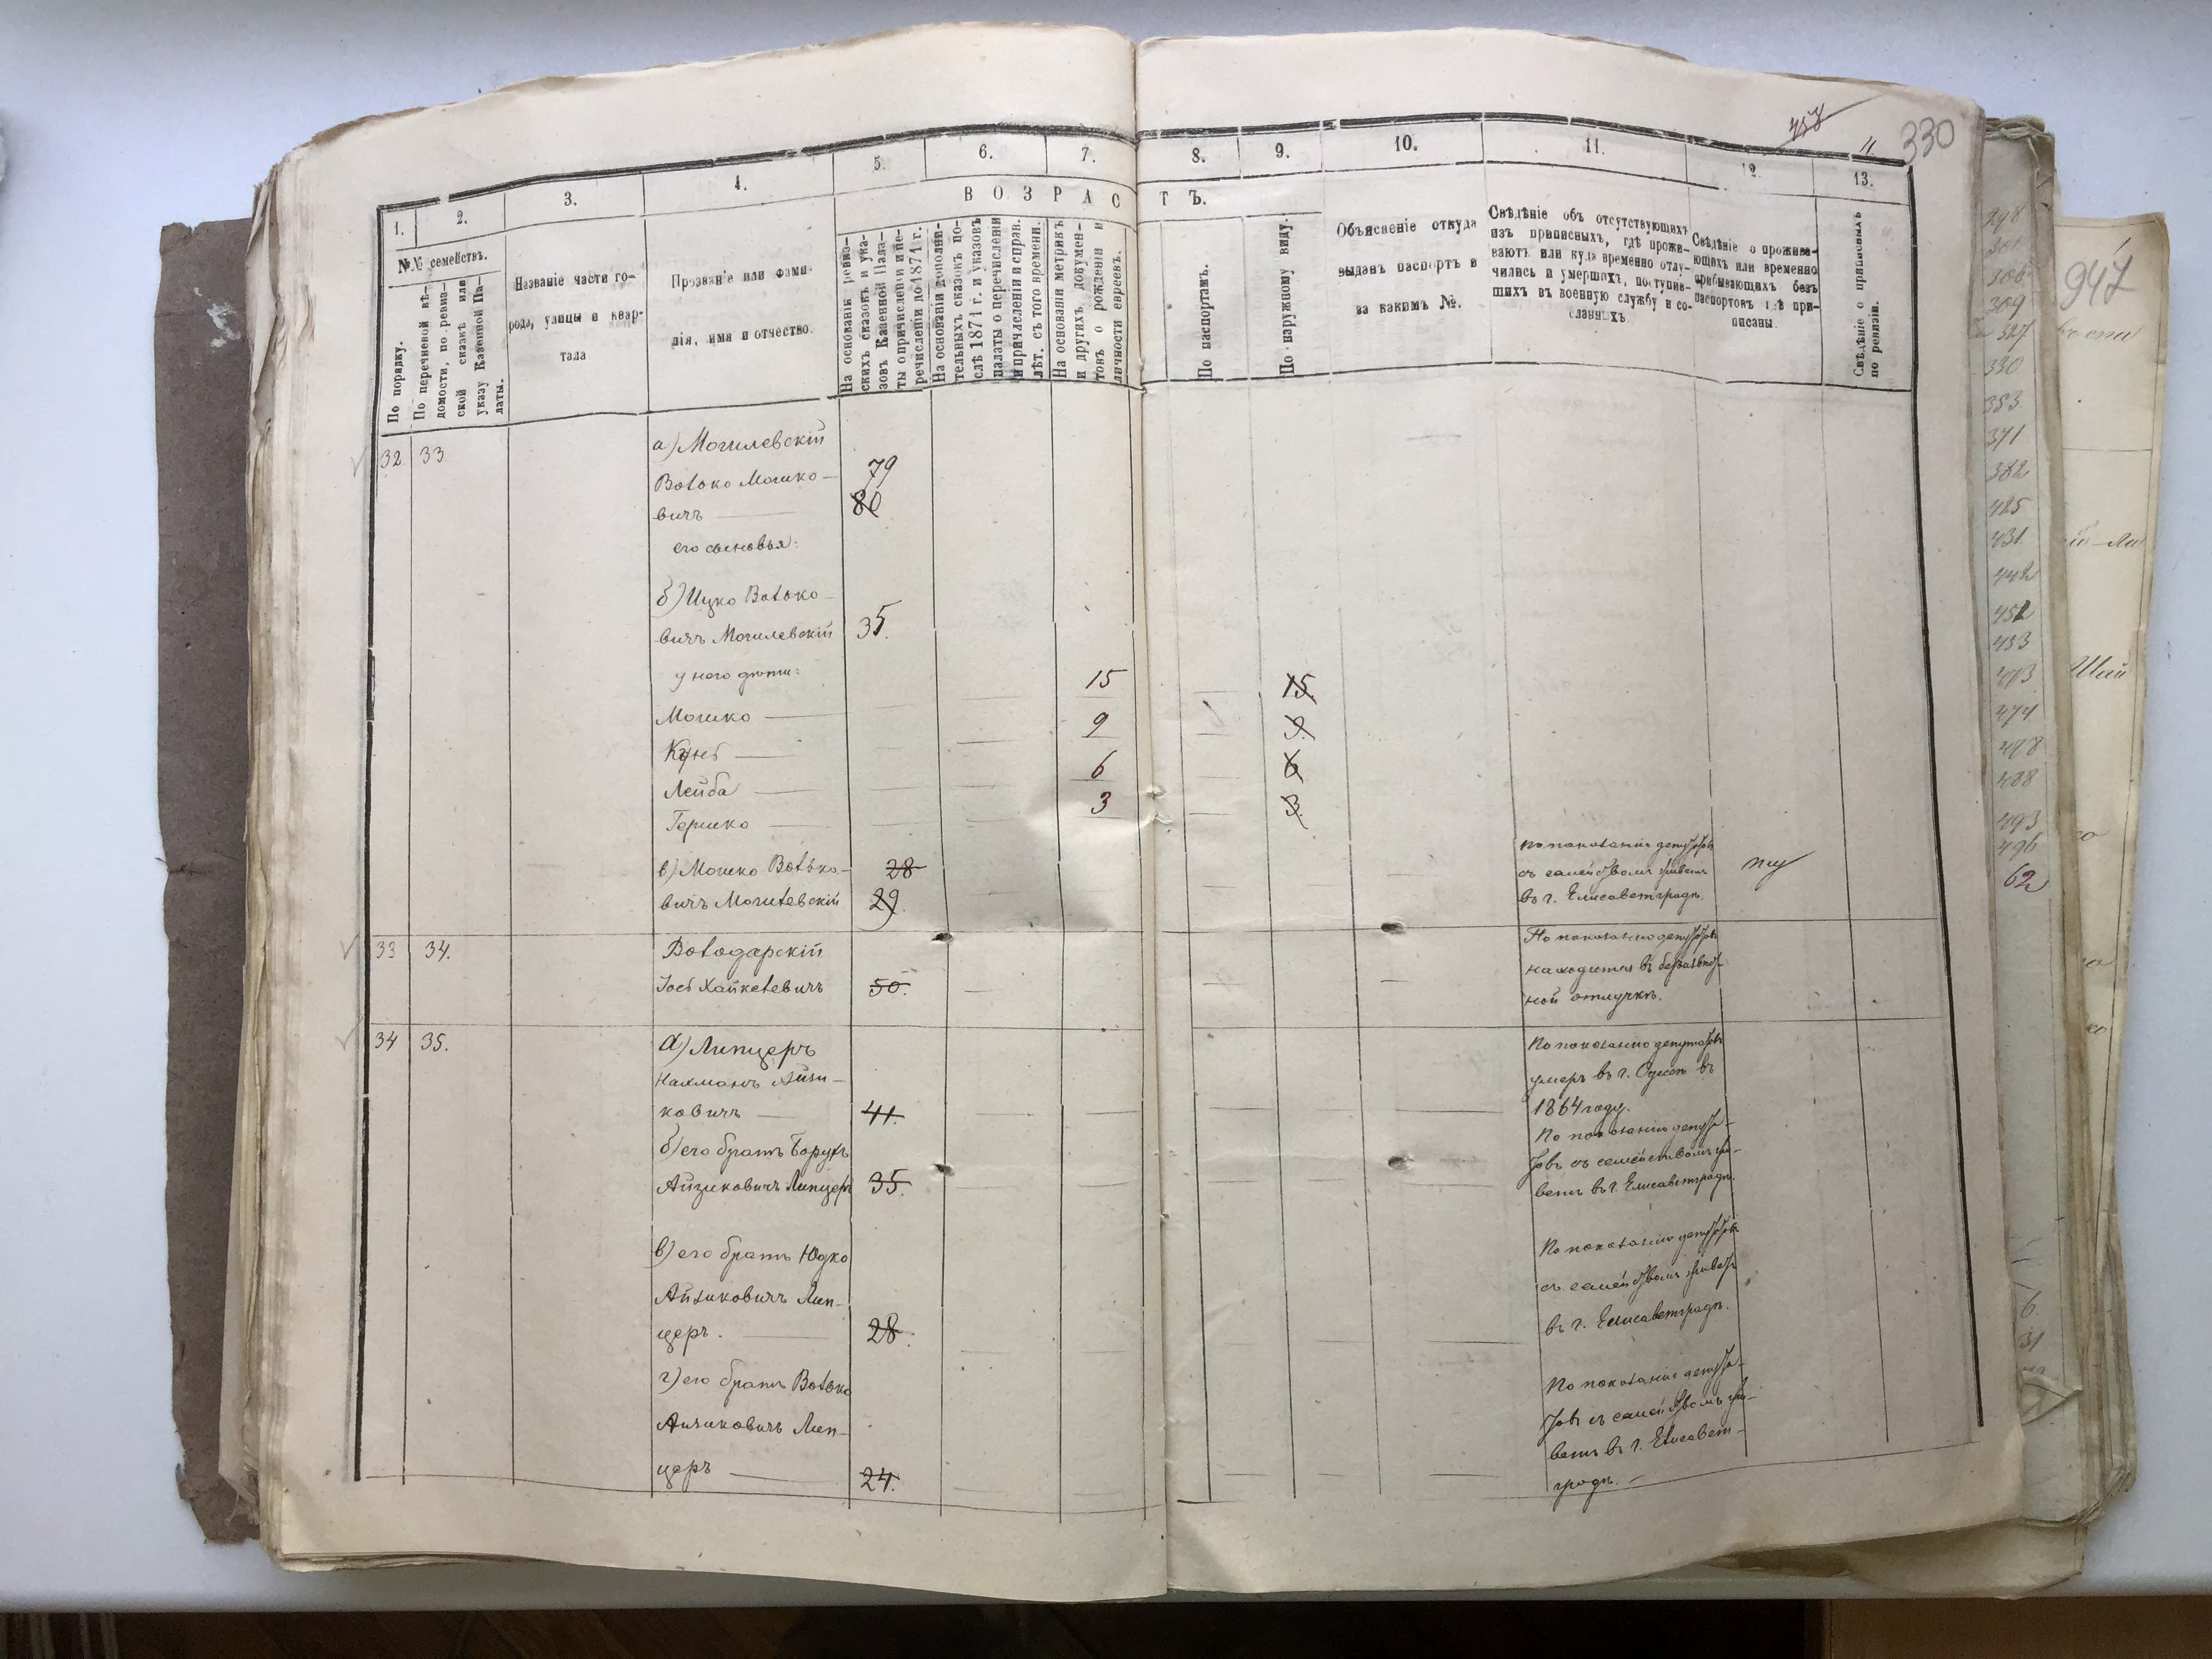 330
1.
2.
3.
4.
5.
6.
7.
8.
9.
10.
11.
12.
13.
ВОЗРАСТЪ.
№№ семействъ.
По порядку.
По перечневой вѣ-
домости, по ревиз-
ской сказкѣ или
указу Казенной Па-
латы.
Названіе части го-
рода, улицы и квар-
тала
Прозваніе или фами-
лія, имя и отчество.
На основаніи ревиз-
скихъ сказокъ и ука-
зовъ Казенной Пала-
ты о причисленіи и пе-
речисленіи до 1871 г.
На основаніи дополни-
тельныхъ сказокъ по-
слѣ 1871 г. и указовъ
палаты о перечисленіи
и причисленіи и справ.
лѣт. съ того времени.
На основаніи метрикъ
и другихъ докумен-
товъ о рожденіи и
личности евреевъ.
По паспортамъ.
По наружному виду.
Объясненіе откуда
выданъ паспортъ и
за какимъ №.
Свѣдѣніе объ отсутствующихъ
изъ приписныхъ, гдѣ прожи-
ваютъ или куда временно отлу-
чились и умершихъ, поступив-
шихъ въ военную службу и со-
сланныхъ
Свѣдѣніе о прожива-
ющихъ или временно
прибывающихъ безъ
паспортовъ гдѣ при-
писаны.
Свѣдѣніе о приписныхъ
по ревизіи.
32 33
а) Могилевскій
Волько Мошко-
79
вичъ
80
его сыновья:
б) Ицко Волько-
вичъ Могилевскій 35.
у него дѣти: 15 15.
Мошко 9 9.
Кунь 6 6
Лейба 3 3.
Гершко
в) Мошко Волько- 28
вичъ Могилевскій 29.
по показанію депутатовъ
съ семействомъ живетъ
въ г. Елисаветградѣ.
33 34.
Володарскій
Іось Хайкелевичъ 50.
По показанію депутатовъ
находится въ безизвѣст-
ной отлучкѣ.
34 35.
а) Липцеръ
Нахманъ Айзи-
ковичъ 41.
По показанію депутатовъ
умеръ въ г. Одессѣ въ
1864 году.
б) его братъ Борухъ
Айзиковичъ Липцеръ 35.
По показанію депута-
товъ съ семействомъ жи-
ветъ въ г. Елисаветградѣ.
в) его братъ Юдко
Айзиковичъ Лип-
церъ. 28.
По показанію депутатовъ
съ семействомъ живетъ
въ г. Елисаветградѣ.
г) его братъ Волько
Айзиковичъ Лип-
церъ 24.
По показанію депута-
товъ съ семействомъ жи-
ветъ въ г. Елисавет-
градѣ.
309
330
353
371
382
425
431
442
452
453
473
474
478
488
493
496
62
947